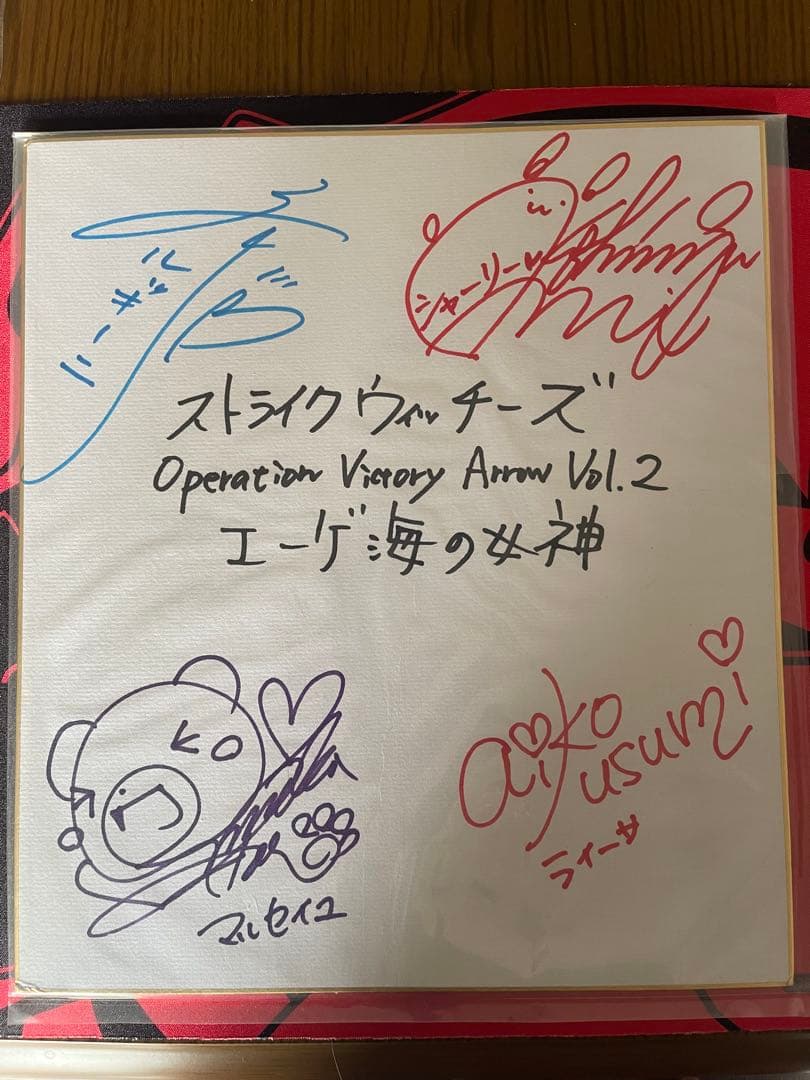 シャーリー
ストライクウィッチーズ
Operation Victory Arrow Vol.2
エーゲ海の女神
aiko usumi
ライーサ
マルセイユ